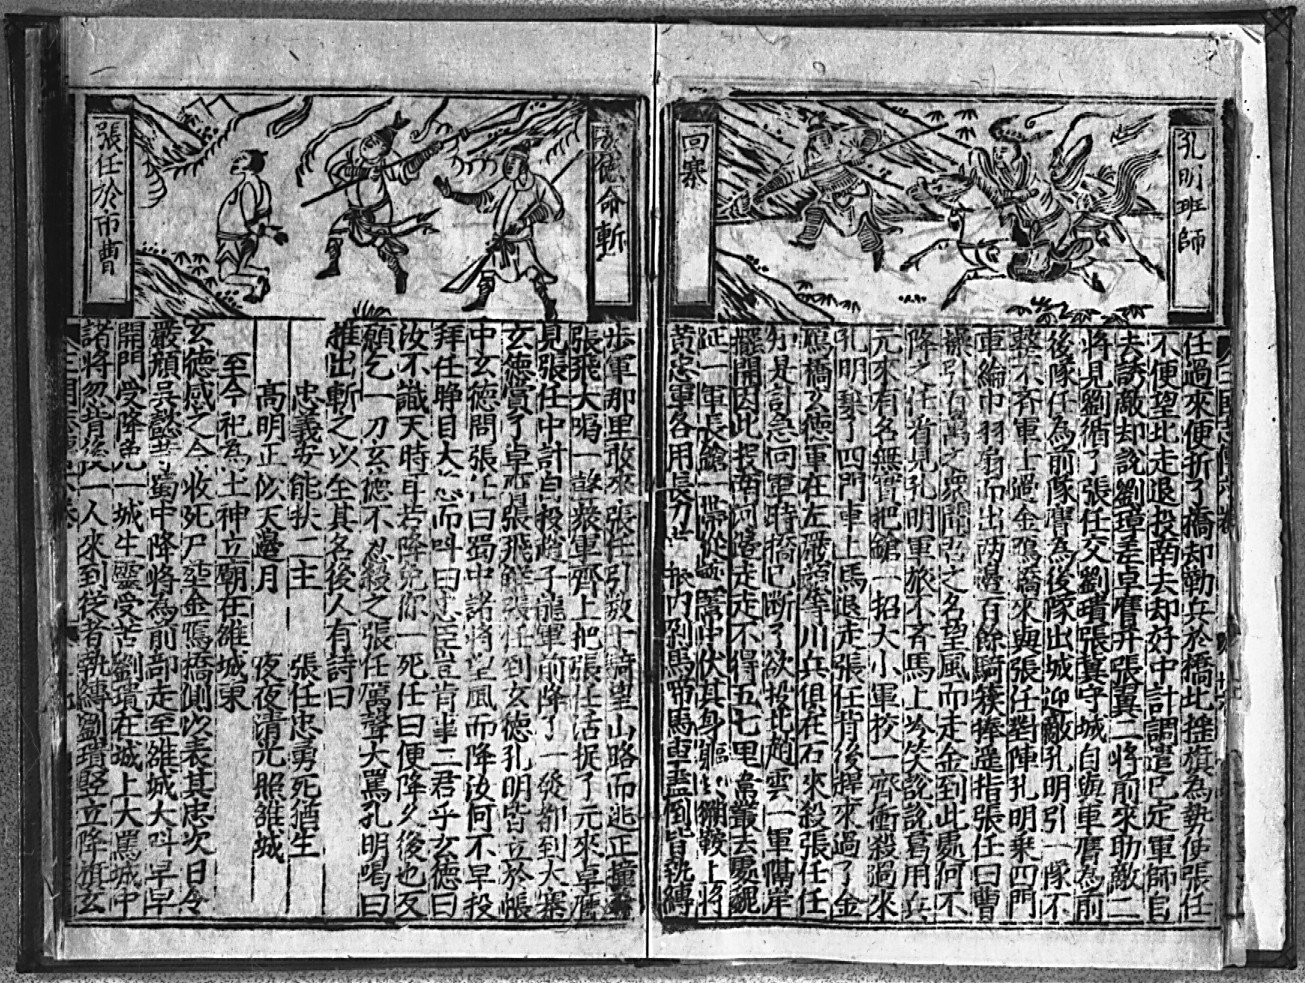 孔明班師
回寨
任過來便折了橋却勒兵於橋北挂旗為勢使張任
不便望北走退投南去却好中計調遣已定軍師自
去誘敵却說劉璋差卓膺并張翼二將前來助敵二
將見劉循了張任交劉璝張翼守城自與軍膺為前
後隊任為前隊膺為後隊出城迎敵孔明引一隊不
整不齊軍士過金鴈橋來與張任對陣孔明乘四門
車綸巾羽扇而出两邊百餘騎簇捧遥指張任曰曹
操引百萬之衆聞吾之名望風而走金到此處何不
降之任看見孔明軍旅不齊馬上冷笑說說葛用兵
元來有名無實把鎗一招大小軍校一齊衝殺過來
孔明棄了四門車上馬退走張任背後趕來過了金
鴈橋玄德軍在左嚴顔等川兵俱在右來殺張任任
知是計急回軍時橋已断了欲投北趙雲一軍隔岸
擺開因此投南河路走走不得五七里蘆叢去處魏
延一軍長鎗一帶從蘆叢中伏其身軀只搠鞍上將
黄忠軍各用長刀 馬 馬軍盡倒皆執縛
德命斬
張任於市曹
步軍那里敢來張任引数十騎望山路而逃正撞着
張飛大喝一聲衆軍齊上把張任活捉了元來卓膺
見張任中計自投趙子龍軍前降了一發都到大寨
玄德賞了卓膺張飛解張任到玄德孔明皆立於帳
中玄德問張任曰蜀中諸將望風而降汝何不早投
拜任睁目大怒而呌曰忠臣豈肯事二君乎玄德曰
汝不識天時耳若降免你一死任曰便降久後也反
願乞一刀玄德不忍殺之張任厲聲大罵孔明喝曰
推出斬之以全其名後人有詩曰
忠義安能扶二主　張任忠勇死猶生
高明正似天邊月　夜夜清光照雒城
至今祀為土神立廟在雒城東
玄德感之令收死尸葬金鴈橋側以表其忠次日令
嚴顔吳懿等蜀中降將為前部走至雒城大呌早早
開門受降免一城生靈受苦劉璝在城上大罵城中
諸將忽背後一人來到從者執縛劉璝竪立降旗玄